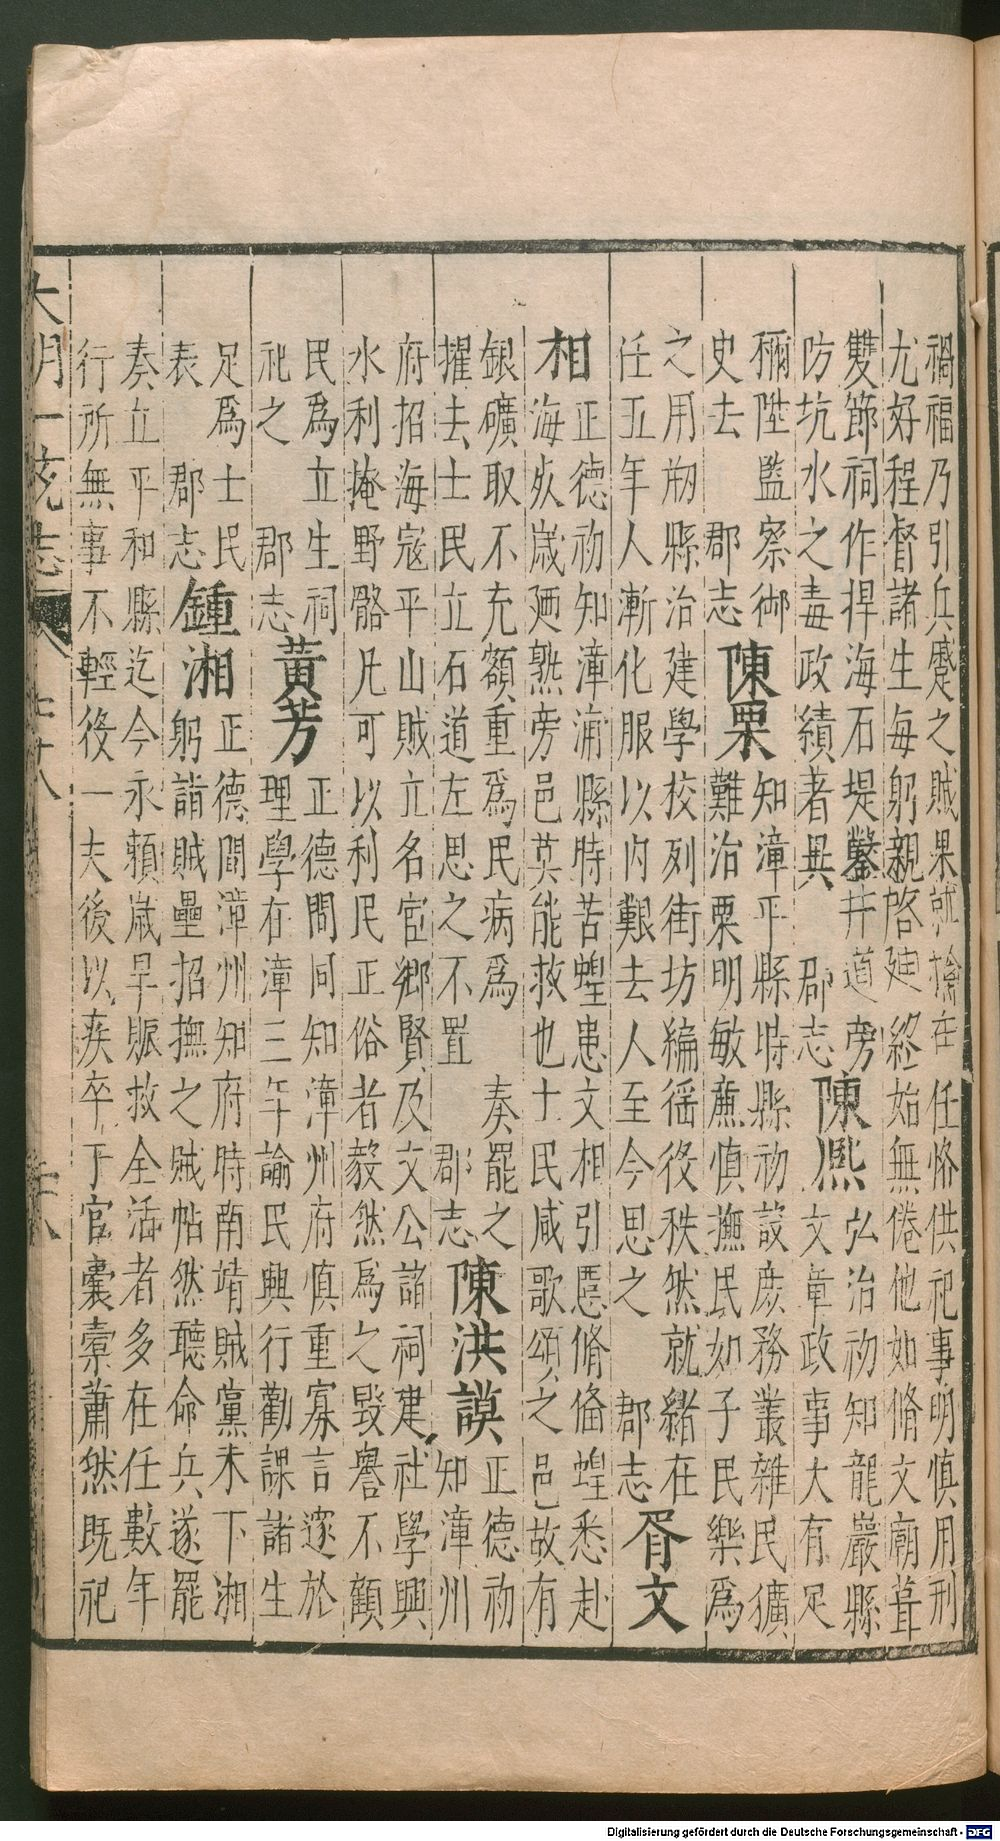 禍福乃引兵蹙之賊果就擒在任恪供祀事明慎用刑
尤好程督諸生每躬親啓廸終始無倦他如脩文廟葺
雙節祠作捍海石堤鑿井道旁
防坑水之毒政績者異 郡志
陳熈
弘治初知龍巖縣
文章政事大有足
稱陞監察御
史去 郡志
陳栗
知漳平縣時縣初設庶務叢雜民獷
難治栗明敏㢘慎撫民如子民樂為
之用剏縣治建學校列街坊編徭役秩然就緒在
任五年人漸化服以内艱去人至今思之 郡志
胥文
相
正德初知漳浦縣時苦蝗患文相引慝脩偹蝗悉赴
海死歲廼熟旁邑莫能救也士民咸歌頌之邑故有
銀礦取不充額重為民病為 奏罷之
擢去士民立石道左思之不置 郡志
陳洪謨
正德初
知漳州
府招海寇平山賊立名宦鄉賢及文公諸祠建社學興
水利掩野骼凡可以利民正俗者毅然為之毀譽不顧
民為立生祠
祀之 郡志
黃芳
正德間同知漳州府慎重寡言邃於
理學在漳三年諭民興行勸課諸生
足為士民
表 郡志
鍾湘
正德間漳州知府時南靖賊黨未下湘
躬詣賊壘招撫之賊帖然聽命兵遂罷
奏立平和縣迄今永賴歲旱賑救全活者多在任數年
行所無事不輕役一夫後以疾卒于官囊橐蕭然既祀
大明一統志
Digitalisierung gefördert durch die Deutsche Forschungsgemeinschaft - DFG